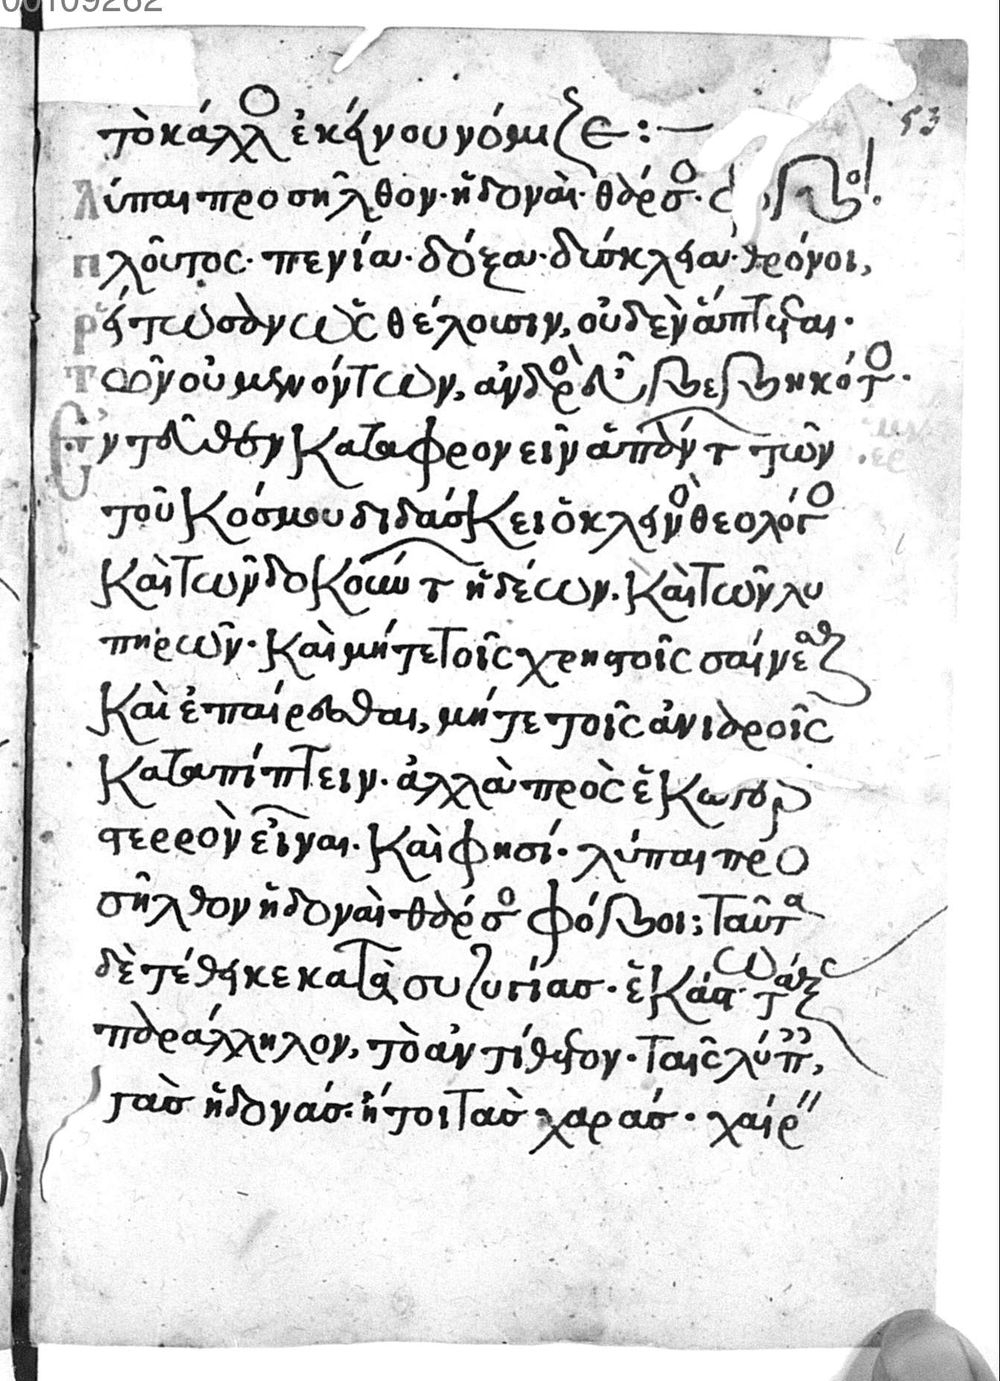 00109262
53
τὸ κάλλο ἐκείνου νόμιζε :—
Λύπαι προσῆλθον· ἡδοναὶ· θάρσο· φόβοι·
πλοῦτος· πενία· δόξα· δύσκλεια· θρόνοι,
ῥείτωσαν ὡς θέλουσιν, οὐδὲν ἅπτεται·
τῶν οὐ μενόντων, ἀνδρὸ εὖ βεβηκότο·
Ἐν τούτοις καταφρονεῖν ἁπάντ τῶν
τοῦ κόσμου διδάσκει ὁ κλεινὸ θεολόγο
καὶ τῶν δοκούντ ἡδέων. καὶ τῶν λυ
πηρῶν· καὶ μήτε τοῖς χρηστοῖς σαίνεσθ
καὶ ἐπαίρεσθαι, μήτε τοῖς ἀνιαροῖς
καταπίπτειν· ἀλλὰ πρὸς ἑκάτερ
στερρὸν εἶναι. καὶ φησί· λύπαι προ
σῆλθον ἡδοναὶ θάρσο φόβοι; ταῦτα
δὲ τέθεικε κατὰ συζυγίας· ἑκάστ τάξ
παράλληλον, τὸ ἀντίθετον· ταῖς λύπ,
τὰς ἡδονάς· ἤτοι τὰς χαράς· χαίρ